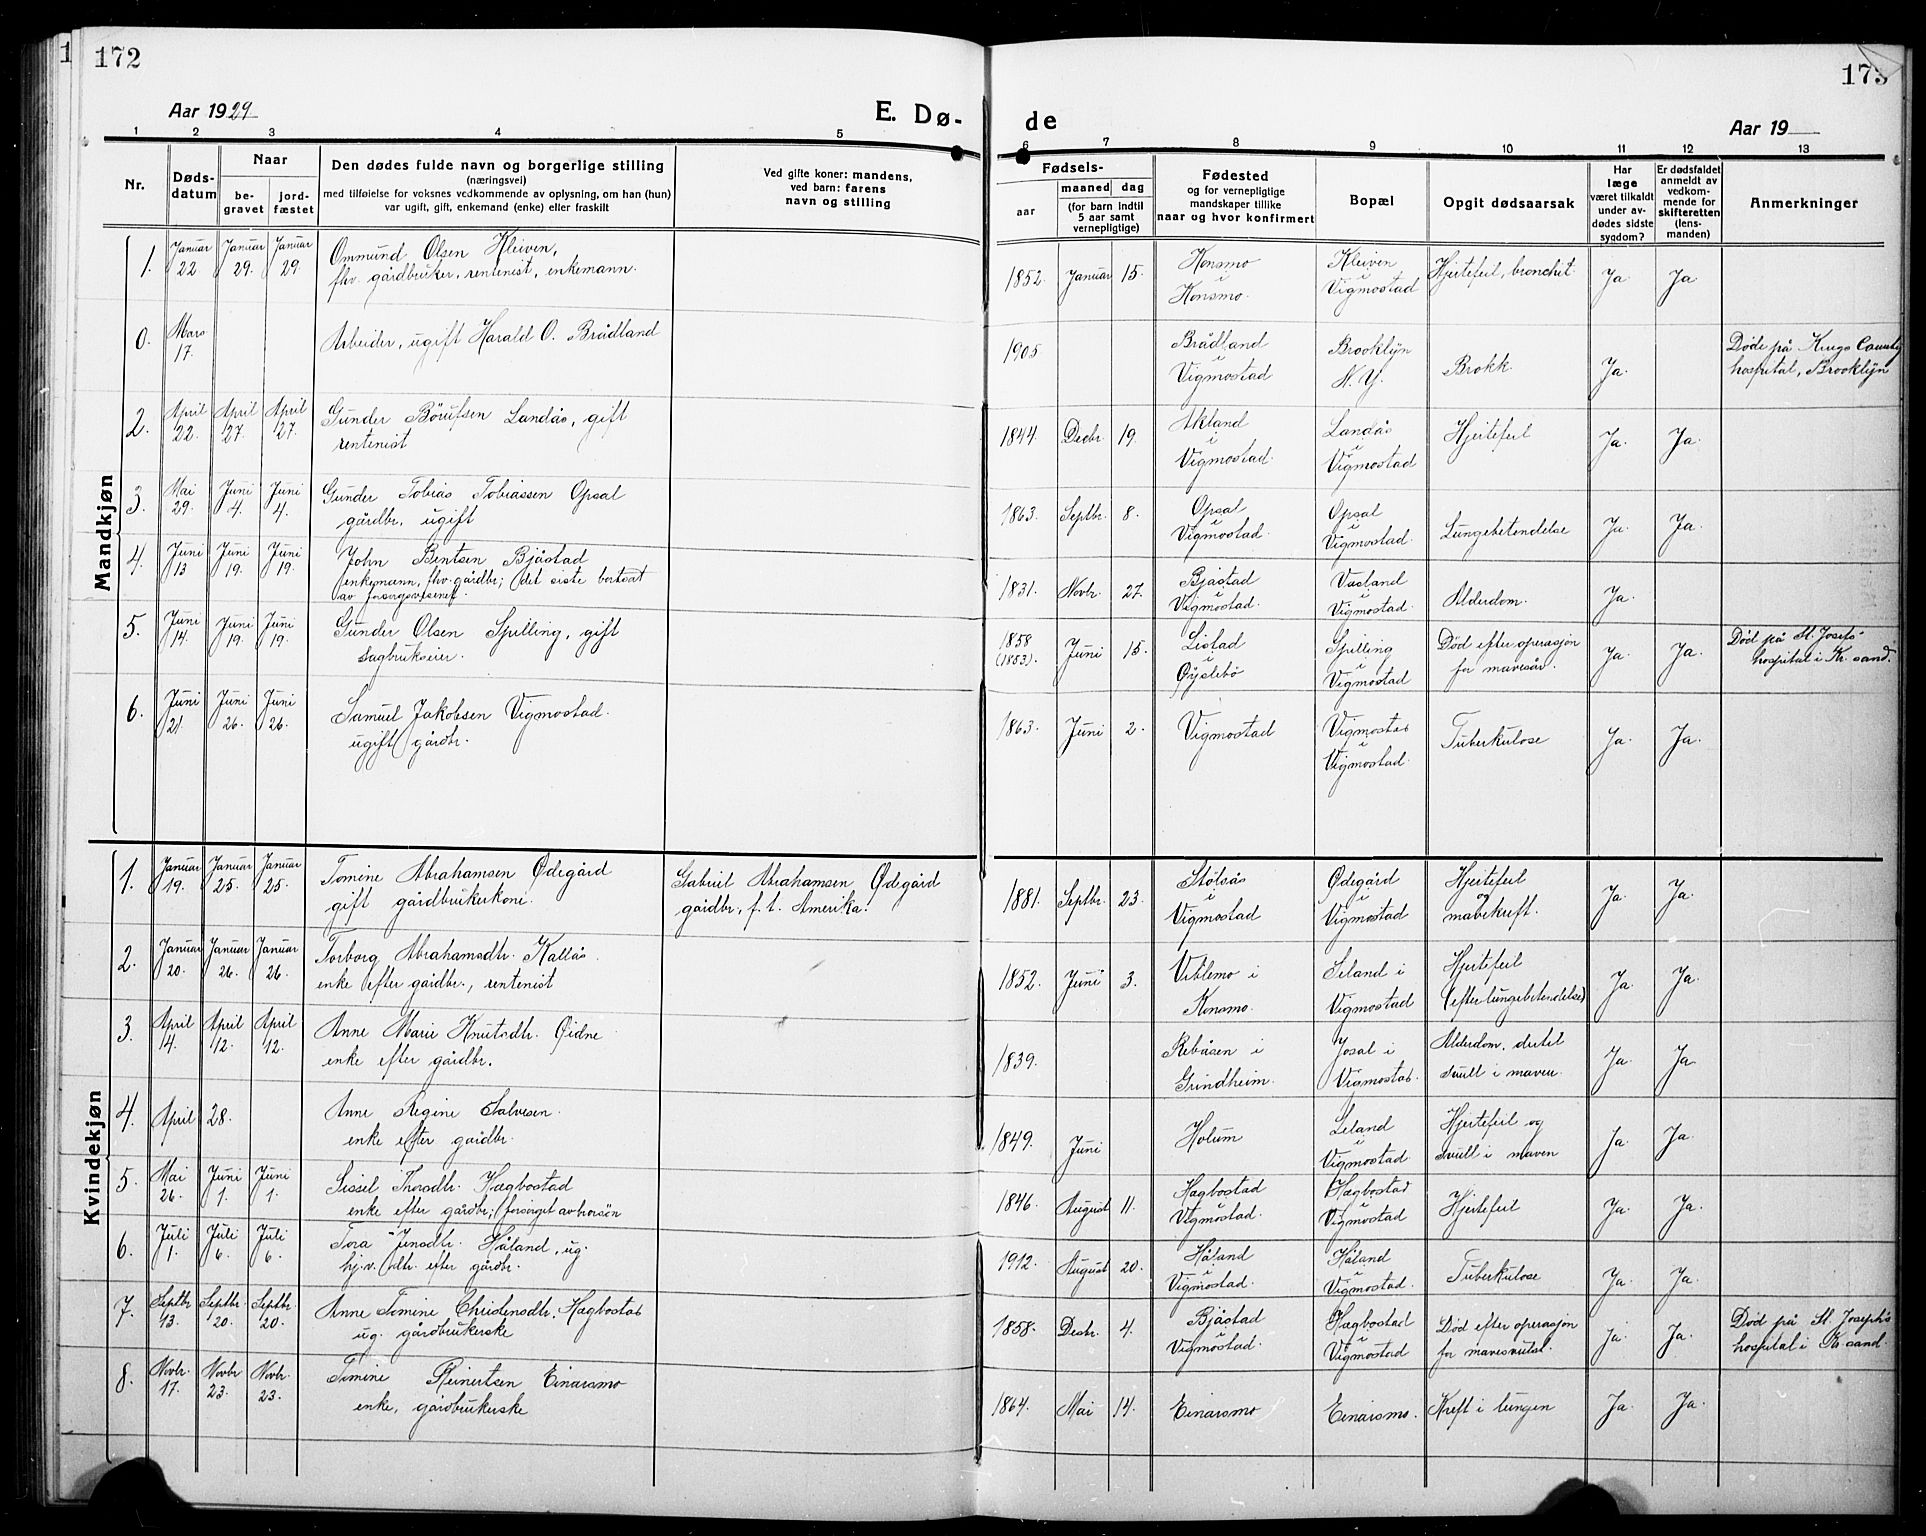 172
Aar 1929
E. Dø-
1 2 3 4 5
Nr.
Døds-
datum
Naar
be-
gravet
jord-
fæstet
Den dødes fulde navn og borgerlige stilling
(næringsvei)
med tilføielse for voksnes vedkommende av oplysning, om han (hun)
var ugift, gift, enkemand (enke) eller fraskilt
Ved gifte koner: mandens,
ved barn: farens
navn og stilling
Mandkjøn
1. Januar 22. Januar 29. Januar 29. Ommund Olsen Kleiven,
fhv. gårdbruker, rentenist, enkemann.
0. Mars 17. Arbeider, ugift Harald O. Brådland
2. April 22. April 27. April 27. Gunder Börufsen Landås, gift
rentenist
3. Mai 29. Juni 4. Juni 4. Gunder Tobias Tobiassen Opsal
gårdbr, ugift
4. Juni 13 Juni 19. Juni 19. John Bentsen Bjåstad
enkemann, fhv. gårdbr; det siste bortsat
av forsorgsvesenet.
5. Juni 14. Juni 19. Juni 19. Gunder Olsen Spilling, gift
sagbrukseier.
6. Juni 21. Juni 26. Juni 26. Samuel Jakobsen Vigmostad.
ugift gårdbr.
Kvindekjøn
1. Januar 19. Januar 25. Januar 25. Tomine Abrahamsen Ødegård
gift gårdbrukerkone.
Gabriel Abrahamsen Ødegård
gårdbr, f. t. Amerika.
2. Januar 20. Januar 26. Januar 26. Torborg Abrahamsdtr. Kallås.
enke efter gårdbr., rentenist
3. April 4. April 12. April 12. Anne Marie Knutsdtr. Øidne
enke efter gårdbr.
4. April 28. Anne Regine Salvesen.
enke efter gårdbr.
5. Mai 26. Juni 1. Juni 1. Sissel Thorsdtr. Hægbostad
enke efter gårdbr; (forsørget av brorsön
6. Juli 1. Juli 6. Juli 6. Tora Jensdtr. Håland, ug.
hj.v. dtr. efter gårdbr.
7. Septbr 13. Septbr. 20. Septbr. 20. Anne Tomine Christensdtr. Hægbostad
ug. gårdbrukerske
8. Novbr. 17. Novbr 23. Novbr. 23. Tomine Reinertsen Einarsmo
enke, gårdbrukerske
173
de
Aar 19
6 7 8 9 10 11 12 13
Fødsels-
aar
maaned
dag
(for barn indtil
5 aar samt
vernepligtige)
Fødested
og for vernepligtige
mandskaper tillike
naar og hvor konfirmert
Bopæl
Opgit dødsaarsak
Har
læge
været tilkaldt
under av-
dødes sidste
sygdom?
Er dødsfaldet
anmeldt av
vedkom-
mende for
skifteretten
(lens-
manden)
Anmerkninger
1852. Januar 15. Konsmo i Konsmo. Kleiven i Vigmostad Hjertefeil, bronchit. Ja Ja
1905 Brådland i Vigmostad Brooklyn N. Y. Brokk. Ja. Døde på Kings County
hospital, Brooklyn
1844. Decbr. 19. Akland i Vigmostad. Landås i Vigmostad Hjertefeil Ja. Ja.
1863. Septbr. 8. Opsal i Vigmostad. Opsal i Vigmostad. Lungebetendelse Ja. Ja.
1831. Novbr. 27. Bjåstad Vigmostad. Vasland i Vigmostad. Alderdom. Ja.
1858 (1853). Juni 15. Listad i Öyslebö Spilling i Vigmostad Død efter operasjon
for mavesår. Ja. Ja. Død på St. Josefs-
hospital i Kr.sand.
1863. Juni 2. Vigmostad Vigmostad i Vigmostad. Tuberkulose Ja. Ja.
1881. Septbr. 23. Stölsås i Vigmostad Ødegård i Vigmostad Hjertefeil og mavekreft. Ja. Ja.
1852. Juni 3. Viblemo i Konsmo. Leland i Vigmostad Hjertefeil
(efter lungebetendelse) Ja. Ja.
1839. Rebåsen i Grindheim. Josal i Vigmostad. Alderdom, dertil
svull i maven. Ja. Ja.
1849. Juni Holum Leland i Vigmostad. Hjertefeil og
svull i maven Ja. Ja.
1846. August 11. Hægbostad i Vigmostad. Hægbostad i Vigmostad Hjertefeil Ja. Ja.
1912. August 20. Håland i Vigmostad. Håland i Vigmostad. Tuberkulose Ja. Ja.
1858. Decbr. 4. Bjåstad i Vigmostad. Hægbostad i Vigmostad Død efter operasjon
for Ja. Ja. Død på St. Joseph's
hospital i Kr.sand.
1864. Mai 14. Einarsmo Einarsmo. Kreft i lungen Ja. Ja.